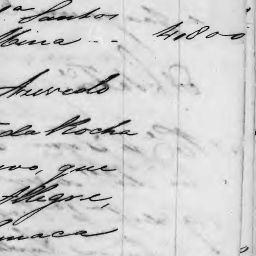 Santos
Mina -- 4$800
Azevedo
da Rocha
vo, que
Alegre,
maca